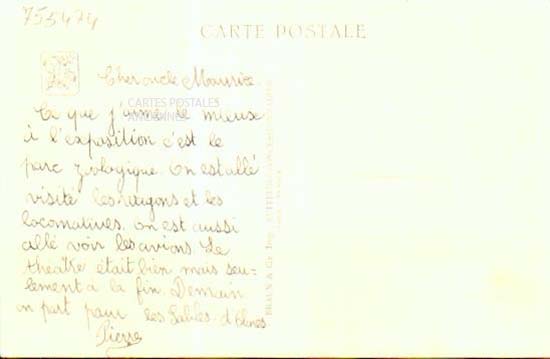 755474
CARTE POSTALE
Cher oncle Maurice.
CARTES POSTALES
ANCIENNES
Ce que j'aime le mieux
à l'exposition c'est le
parc zoologique. On est allé
visité les wagons et les
locomatives. On est aussi
allé voir les avions. Le
theatre était bien mais seu-
lement a la fin. Demain
on part pour les Sables. d'Olones
Pierre
BRAUN & Cie Imp.